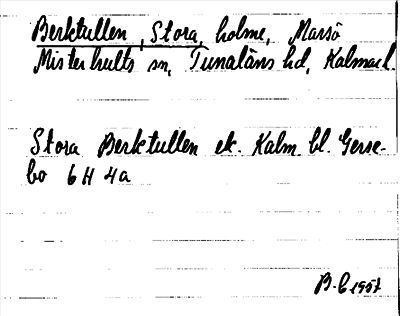 Berktullen, Stora, holme, Marsö
Misterhults sn, Tunaläns hd, Kalmar l.
Stora Berktullen ek. Kalm. bl. Gerse-
bo 6 H 4a
B-C 1957